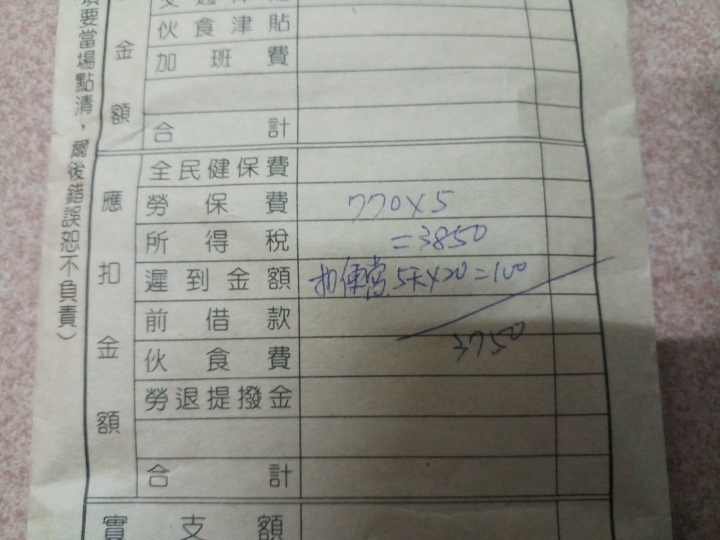 伙食津貼
加班費
合計
金額
全民健保費
勞保費 770×5
所得稅 =3850
遲到金額 扣便當.5天×20=100
前借款
伙食費 3750
勞退提撥金
合計
應扣金額
實支額
要當場點清，爾後錯誤恕不負責）